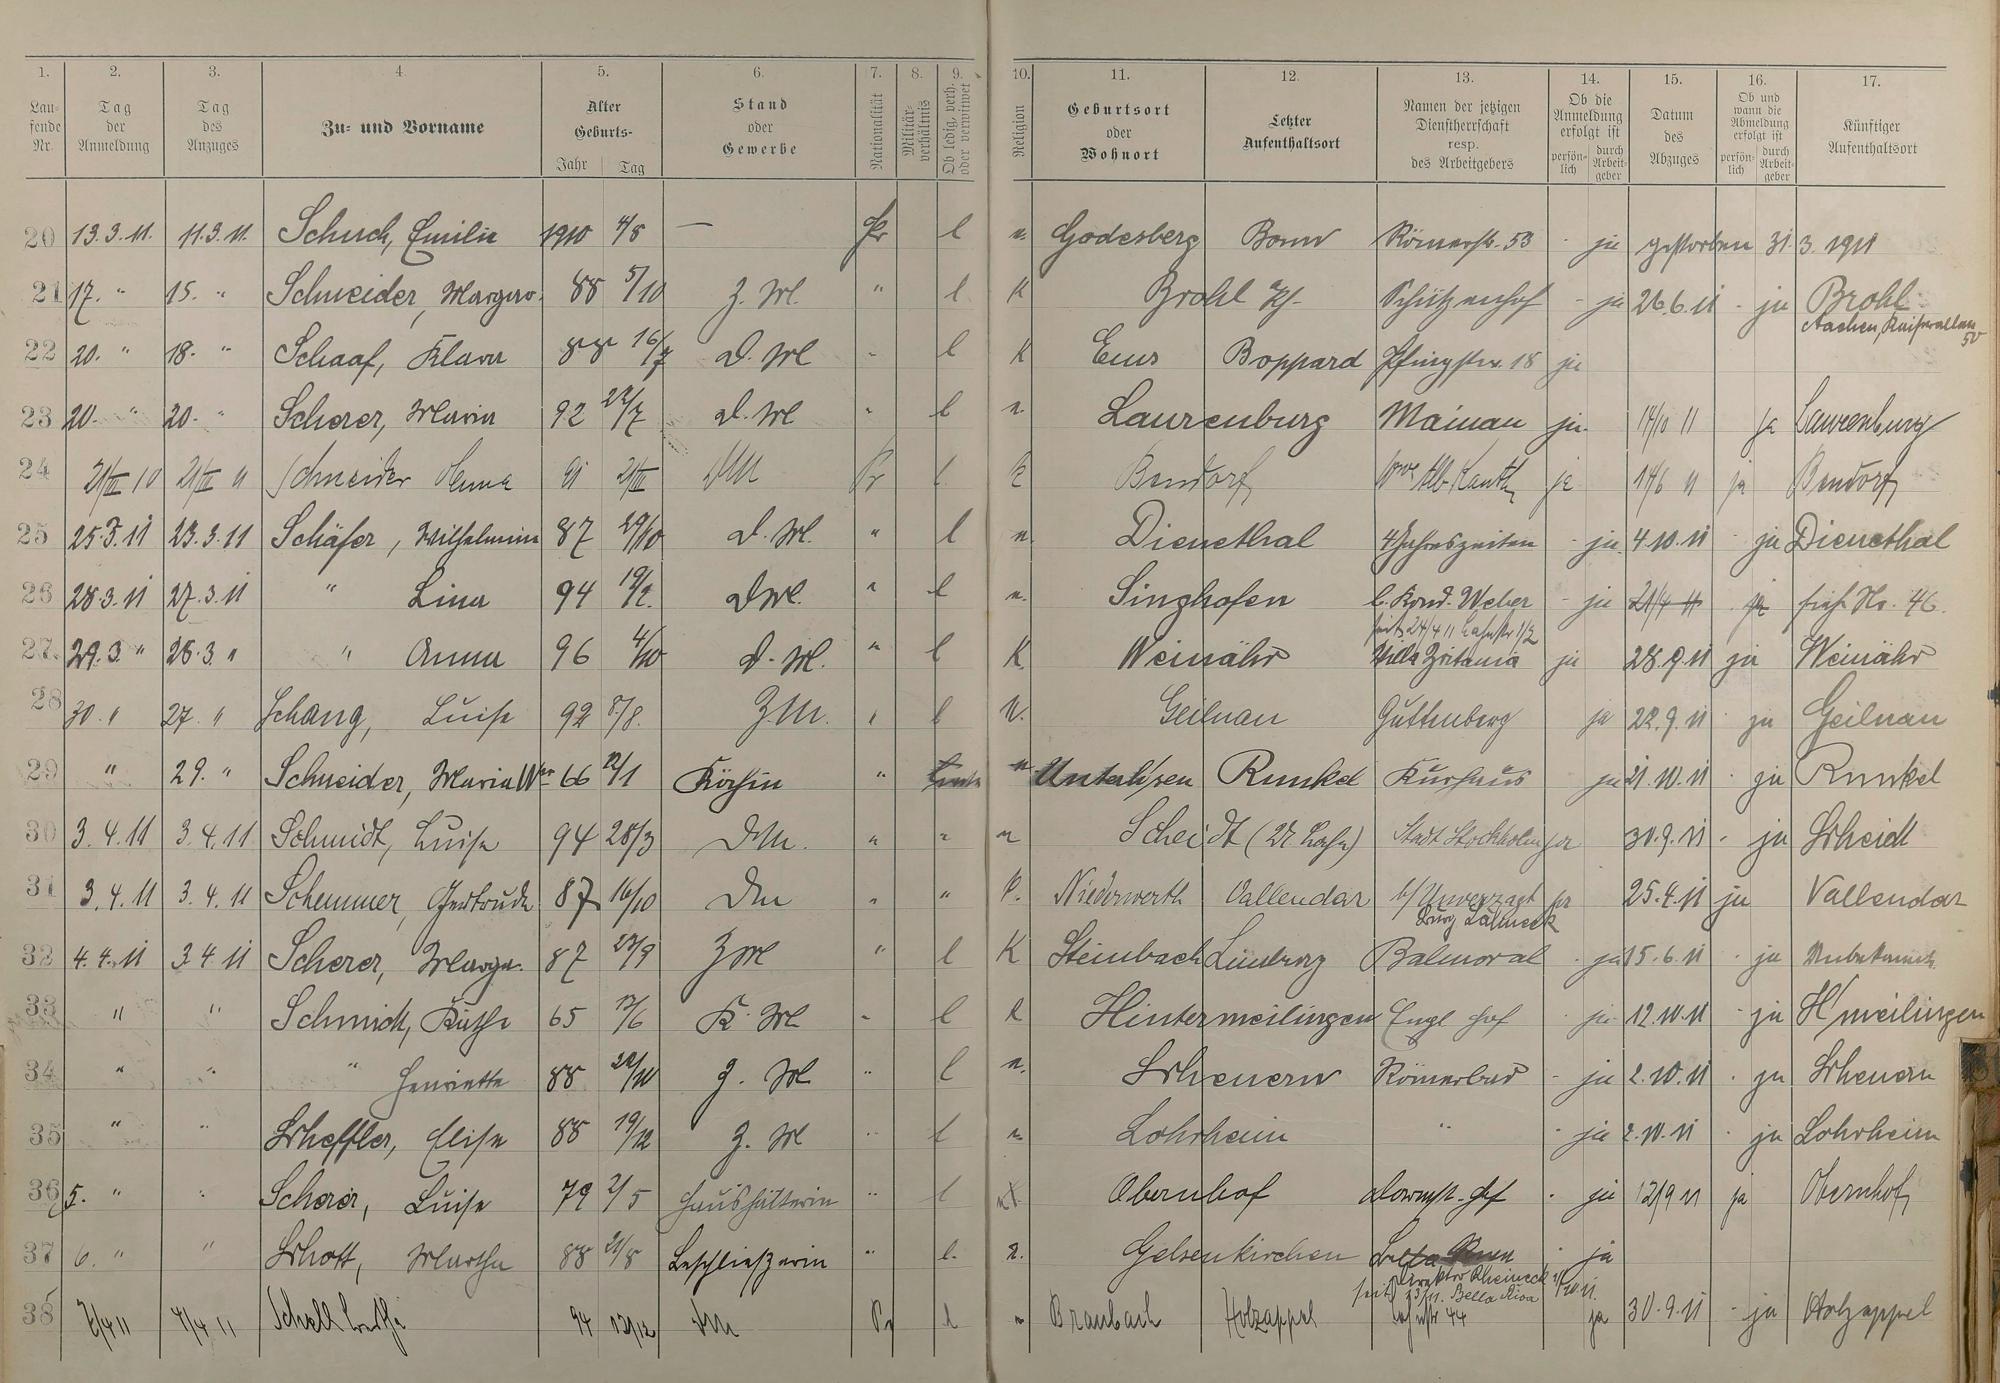 1. 2. 3. 4. 5. 6. 7. 8. 9. 10. 11. 12. 13. 14. 15. 16. 17.
Lau-fende Nr. Tag der Anmeldung Tag des Anzuges Zu- und Vorname Alter Geburts- Jahr Tag Stand oder Gewerbe Nationalität Militär-verhältnis Ob ledig, verh. oder verwitwet Religion Geburtsort oder Wohnort Letzter Aufenthaltsort Namen der jetzigen Dienstherrschaft resp. des Arbeitgebers Ob die Anmeldung erfolgt ist persön-lich durch Arbeit-geber Datum des Abzuges Ob und wann die Abmeldung erfolgt ist persön-lich durch Arbeit-geber Künftiger Aufenthaltsort
20 13.3.11. 11.3.11. Schuch, Emilie 1910 4/8 — Pr l Godesberg Bonn Römerstr. 53 - ja gestorben 31.3.1911
21 17. " 15. " Schneider, 88 5/10 Z. M. " l K Brohl Schützenhof - ja 26.6.11 - ja Brohl
22 20. " 18. " Schaaf, Klara 88 16/7 D. M " l K Ems Boppard Pfingstw. 18 ja Aachen, Kaiserallee 50
23 20. " 20. " Scherer, Maria 92 22/7 D. M " l Laurenburg Mainau ja 17/10 11 ja Laurenburg
24 21/III 10 21/III 11 Schneider 91 21/III DM Pr l K Bendorf Wwe Alb. Kauth ja 14/6 11 ja Bendorf
25 25.3.11 23.3.11 Schäfer, Wilhelmine 87 29/10 D. M. " l Dienethal 4 Jahreszeiten - ja 4.10.11 - ja Dienethal
26 28.3.11 27.3.11 " Lina 94 19/2. DM. " l Singhofen b. Kond. Weber - ja 21/4 11 - ja siehe Nr. 46.
seit 24/4 11 Lahnstr 1/2
27. 29.3. " 28.3. " " Anna 96 4/10 D. M. " l K Weinähr Villa Britania ja 28.9.11 ja Weinähr
28 30. " 27. " Schang, Luise 92 8/8. ZM. " l Geilnau Guttenberg ja 22.9.11 - ja Geilnau
29 " 29. " Schneider, Maria Wwe 66 22/1 Köchin " Runkel Kurhaus ja 21.10.11 - ja Runkel
30 3.4.11 3.4.11 Schmidt, Luise 94 28/3 DM. " " Scheidt Stadt Stockholm ja 30.9.11 - ja Scheidt
31 3.4.11 3.4.11 Schemmer, Gertrude 87 16/10 DM " " K. Niederwerth Vallendar b/ Unverzagt ja 25.4.11 ja Vallendar
Burg Lahneck
32 4.4.11 3.4.11 Scherer, 87 ZM " l K Steinbach Limburg Balmoral - ja 15.6.11 - ja Unbekannt
33 " " Schmidt, Käthe 65 17/6 K. M " l K Hintermeilingen Engl Hof - ja 12.10.11 - ja H/meilingen
34 " " " Henriette 88 Z. M. " l Scheuern Römerbad - ja 2.10.11 - ja Scheuern
35 " " Scheffler, Elise 88 19/12 Z. M " l Lohrheim " - ja 2.10.11 - ja Lohrheim
36 5. " " Scherer, Luise 79 2/5 Haushälterin " l Obernhof - ja 12/9 11 ja Obernhof
37 6. " " Schott, Martha 88 21/8 Beschließerin " l. Gelsenkirchen - ja
Direktor Rheineck
seit Bella Riva
38 7/4 11 7/4 11 Schell 94 12/12 DM Pr l Braubach Holzappel 44 ja 30.9.11 - ja Holzappel